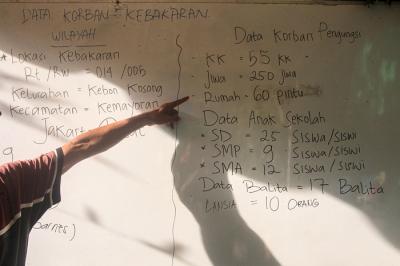 DATA KORBAN = KEBAKARAN
WILAYAH
* Lokasi Kebakaran
Rt/Rw = 014/005
Kelurahan = Kebon Kosong
Kecamatan = Kemayoran
Jakarta
Data Korban Pengungsi
- KK = 55 KK -
- Jiwa = 250 Jiwa
- Rumah = 60 pintu
Data Anak Sekolah
* SD = 25 Siswa/Siswi
* SMP = 9 Siswa/Siswi
* SMA = 12 Siswa/Siswi
Data Balita = 17 Balita
LANSIA = 10 ORANG